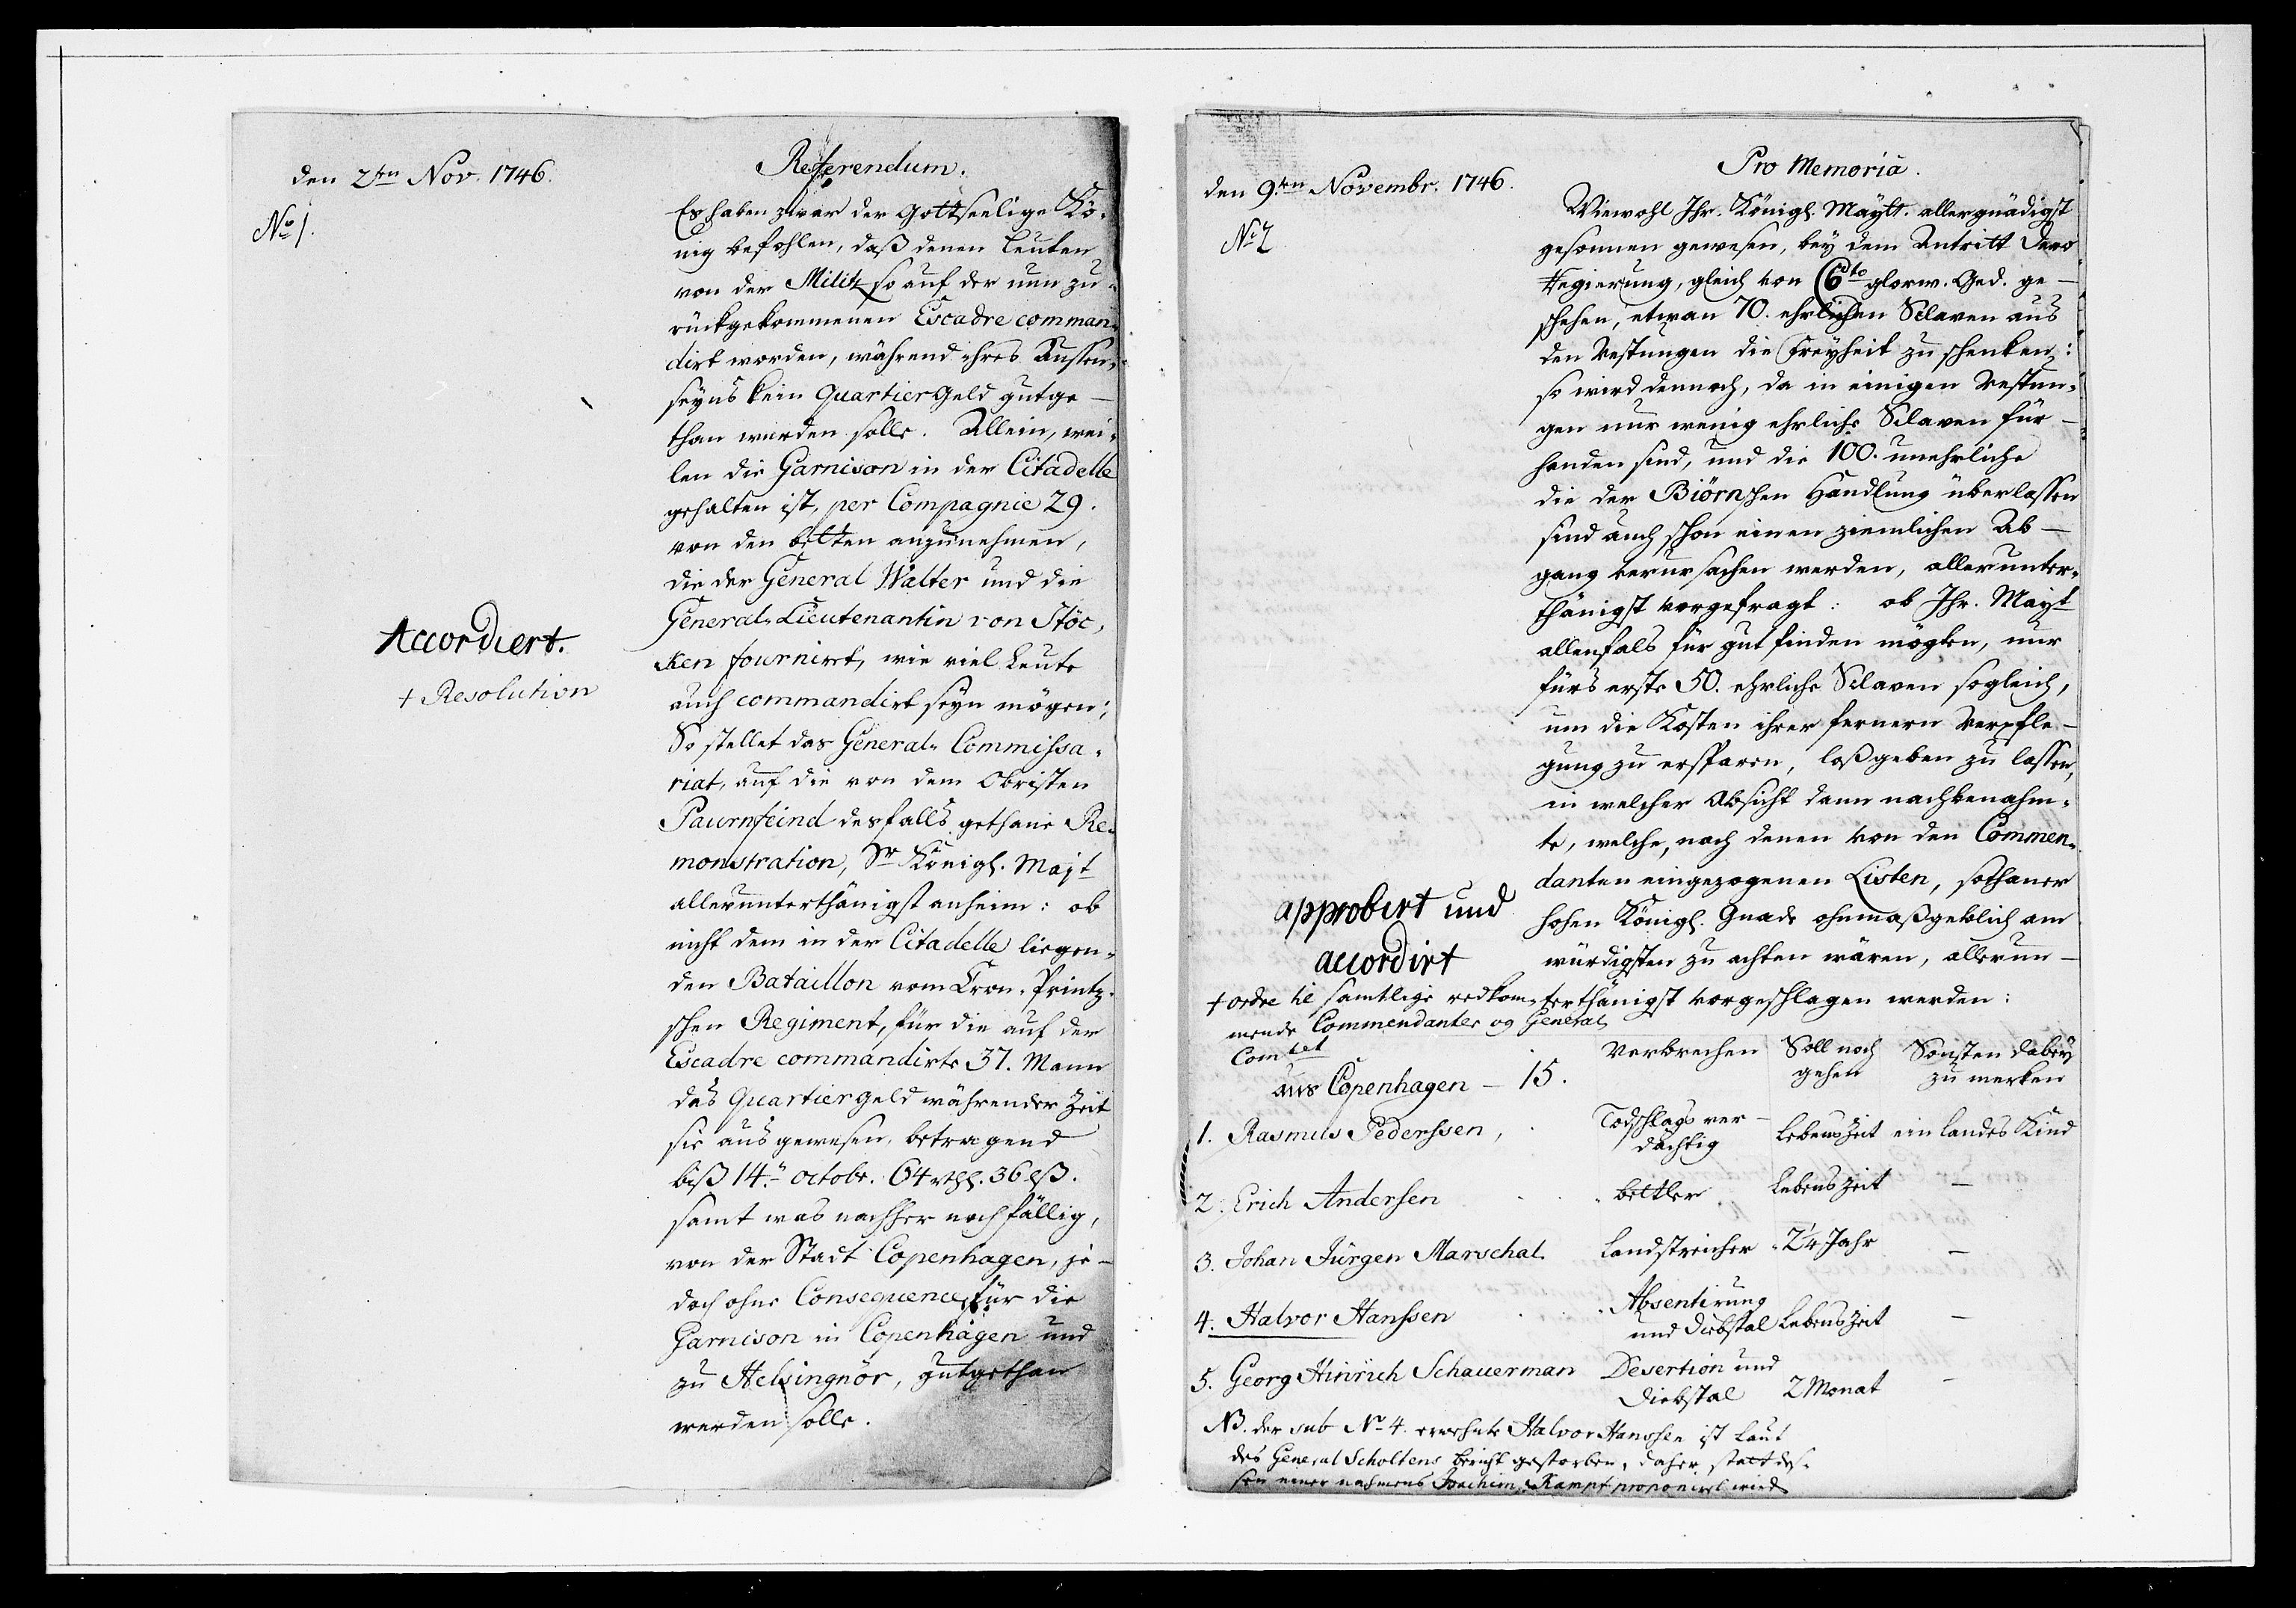 den 2ten Nov. 1746.
No 1.
Referendum.
Es haben zwar der Gottseelige Kö-
nig befohlen, daß denen Leuten
von der Militz so auf der nun zu-
rückgekommenen Escadre comman-
dirt worden, während ihres Aussen-
seyns kein Quartier Geld gutge-
than werden solle. Allein, wei-
len die Garnison in der Citadelle
gehalten ist, per Compagnie 29.
von den betten anzunehmen,
die der General Walter und die
General-Lieutenantin von Stöc-
ken fournirt, wie viel Leute
auch commandirt seyn mögen;
So stellet das General-Commissa-
riat, auf die von dem Obristen
Paurnfeind desfalls gethane Re-
monstration, Sr Königl. Majt
allerunterthänigst anheim: ob
nicht dem in der Citadelle liegen-
den Bataillon vom Cron-Printz-
schen Regiment, für die auf der
Escadre commandirte 37. Mann
das Quartiergeld während der Zeit
sie aus gewesen, betragend
biß 14.n octobr. 64 rthl. 36 lß.
samt was nachher noch fällig,
von der Stadt Copenhagen, je-
doch ohne Consequence für die
Garnison in Copenhagen und
zu Helsingnör, gutgethan
werden solle.
Accordiert.
+ Resolution
den 9.ten Novembr. 1746.
No 2
Pro Memoria.
Wiewohl Ihr. Königl. Maytt. allergnädigst
gesonnen gewesen, bey dem Antritt Dero
Regierung, gleich von C 6to glorw. Ged. ge-
schehen, etwan 70. ehrlichen Sclaven aus
den Vestungen die Freyheit zu schenken:
so wird dennoch, da in einigen Vestun-
gen nur wenig ehrliche Sclaven für-
handen sind, und die 100. unehrliche
die der Biörnschen Handlung überlassen
sind auch schon einen ziemlichen Ab-
gang verursachen werden, allerunter-
thänigst vorgefragt: ob Ihr. Mayt
allenfals für gut finden mögten, nur
fürs erste 50. ehrliche Sclaven sogleich,
um die Kosten ihrer fernern Verpfle-
gung zu ersparen, loßgeben zu lassen,
in welcher Absicht dann nachbenahm-
te, welche, nach denen von den Commen-
danten eingezogenen Listen, sothaner
hohen Königl. Gnade ohnmaßgeblich am
würdigsten zu achten wären, allerun-
terthänigst vorgeschlagen werden:
approbirt und
accordirt
+ ordre til samtlige vedkom-
mende Commendanter og General
Com tet
aus Copenhagen – 15.
Verbrechen Soll noch gehen Sonsten dabey zu merken
1. Rasmus Pederssen, Todschlags ver-
dächtig Lebens Zeit ein Landes Kind
2. Erich Andersen bettler Lebens Zeit –
3. Johan Jürgen Marschal Landstreicher 24 Jahr –
4. Halvor Hanssen Absentirung
und Diebstal Lebens Zeit –
5. Georg Hinrich Schauerman Desertion und
Diebstal 2 Monat –
NB. der sub No 4. erwehnte Halvor Hanssen ist laut
des General Scholtens bericht gestorben, daher statt des-
sen einer nahmens Joachim Kampf proponirt wird